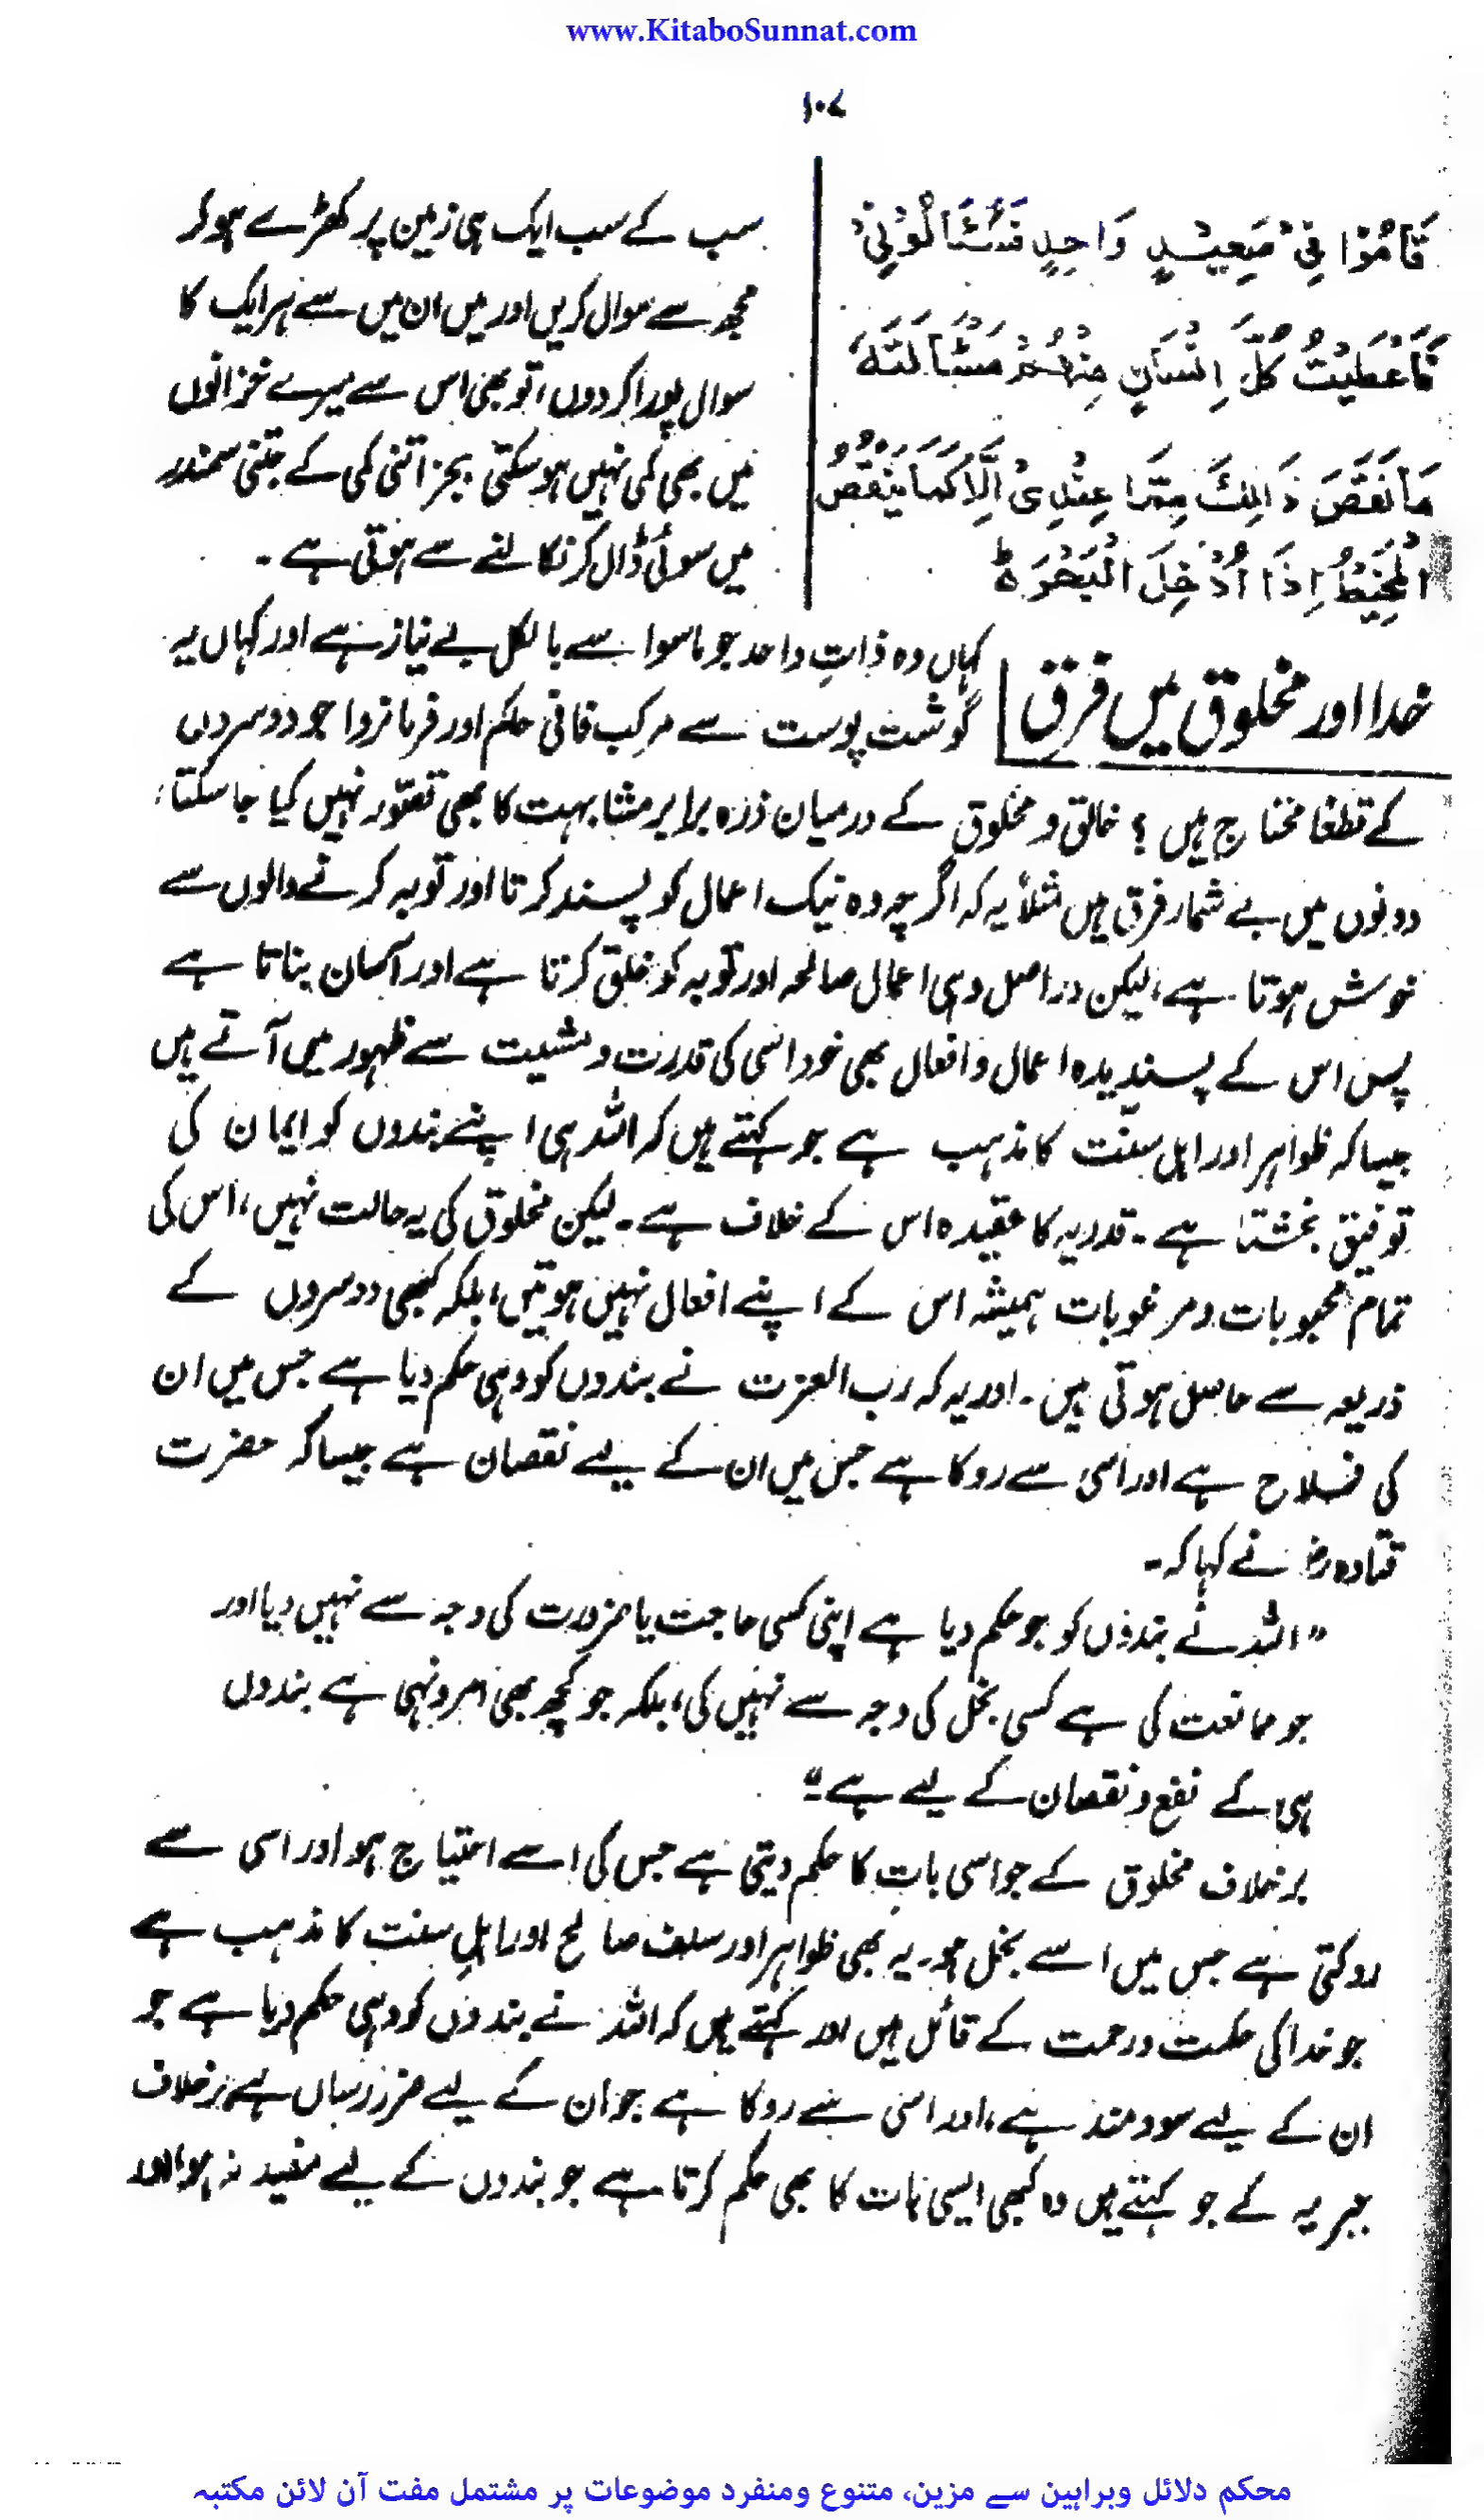 www.KitaboSunnat.com
۱۰۷
قَامُوْا فِیْ صَعِیْدٍ وَاحِدٍ فَسَئَالُوْنِیْ
فَاَعْطَیْتُ كُلَّ اِنْسَانٍ مِنْهُمْ مَسْئَالَتَهٗ
مَا نَقَصَ ذَالِكَ مِمَّا عِنْدِیْ اِلَّا كَمَا یَنْقُصُ
الْمِخْیَطُ اِذَا اُدْخِلَ الْبَحْرَ ط
سب کے سب ایک ہی زمین پر کھڑے ہوکر
مجھ سے سوال کریں اور میں ان میں سے ہر ایک کا
سوال پورا کر دوں، تو بھی اس سے میرے خزانوں
میں بھی کمی نہیں ہو سکتی بجز اتنی کمی کے جتنی سمندر
میں سوئی ڈال کر نکالنے سے ہوتی ہے ۔
خدا اور مخلوق میں فرق
کہاں وہ ذاتِ واحد جو ماسوا سے بالکل بے نیاز ہے اور کہاں یہ
گوشت پوست سے مرکب فانی حاکم اور فرمانروا جو دوسروں
کے قطعًا محتاج ہیں ؟ خالق و مخلوق کے درمیان ذرہ برابر مشابہت کا بھی تصوّر نہیں کیا جا سکتا،
دونوں میں بے شمار فرق ہیں مثلاً یہ کہ اگرچہ وہ نیک اعمال کو پسند کرتا اور توبہ کرنے والوں سے
خوش ہوتا ہے، لیکن دراصل وہی اعمال صالحہ اور توبہ کو خلق کرتا ہے اور آسان بناتا ہے
پس اس کے پسندیدہ اعمال و افعال بھی خود اسی کی قدرت و مشیت سے ظہور میں آتے ہیں
جیسا کہ ظواہر اور اہل سنت کا مذہب ہے جو کہتے ہیں کہ اللہ ہی اپنے بندوں کو ایمان کی
توفیق بخشتا ہے ۔ قدریہ کا عقیدہ اس کے خلاف ہے ۔ لیکن مخلوق کی یہ حالت نہیں، اس کی
تمام محبوبات و مرغوبات ہمیشہ اس کے اپنے افعال نہیں ہوتیں، بلکہ کبھی دوسروں کے
ذریعہ سے حاصل ہوتی ہیں ۔ اور یہ کہ رب العزت نے بندوں کو وہی حکم دیا ہے جس میں ان
کی فلاح ہے اور اسی سے روکا ہے جس میں ان کے لیے نقصان ہے جیسا کہ حضرت
قتادہ رضؓ نے کہا کہ ۔
" اللہ نے بندوں کو جو حکم دیا ہے اپنی کسی حاجت یا ضرورت کی وجہ سے نہیں دیا اور
جو ممانعت کی ہے کسی بخل کی وجہ سے نہیں کی، بلکہ جو کچھ بھی امر و نہی ہے بندوں
ہی کے نفع و نقصان کے لیے ہے "
برخلاف مخلوق کے جو اسی بات کا حکم دیتی ہے جس کی اسے احتیاج ہو اور اسی سے
روکتی ہے جس میں اسے بخل ہو۔ یہ بھی ظواہر اور سلف صالح اور اہلِ سنت کا مذہب ہے
جو خدا کی حکمت و رحمت کے قائل ہیں اور کہتے ہیں کہ اللہ نے بندوں کو وہی حکم دیا ہے جو
ان کے لیے سود مند ہے، اور اسی سے روکا ہے جو ان کے لیے ضرر رساں ہے، برخلاف
جبریہ کے جو کہتے ہیں وہ کبھی ایسی بات کا بھی حکم کرتا ہے جو بندوں کے لیے مفید نہ ہو اور
محکم دلائل وبراہین سے مزین، متنوع ومنفرد موضوعات پر مشتمل مفت آن لائن مکتبہ